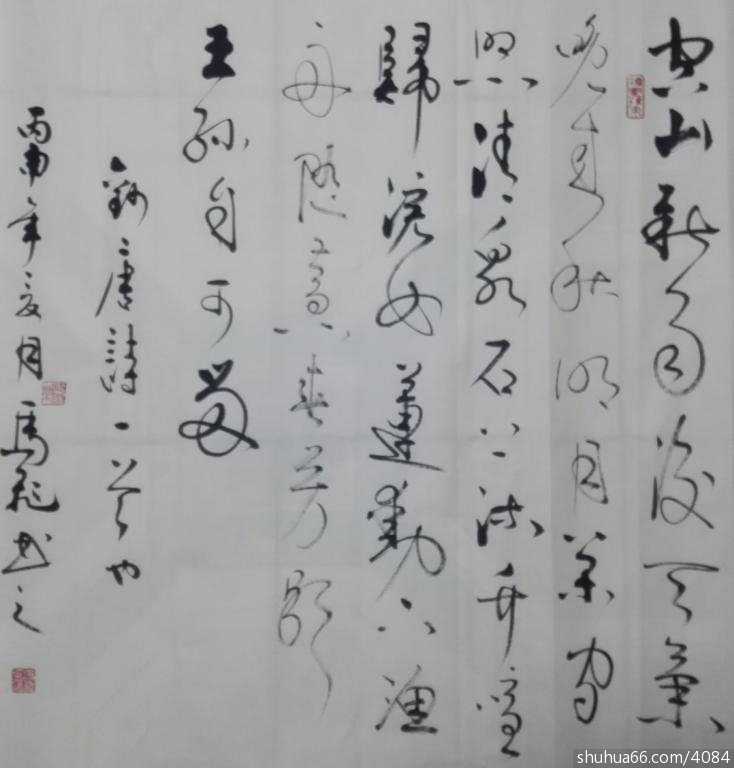 空山新雨後天氣
晚來秋明月松間
照清泉石上流竹喧
歸浣女蓮動下漁
舟隨意春芳歇
王孫自可留
錄唐詩一首也
丙申年夏月馬書之
shuhua66.com/4084